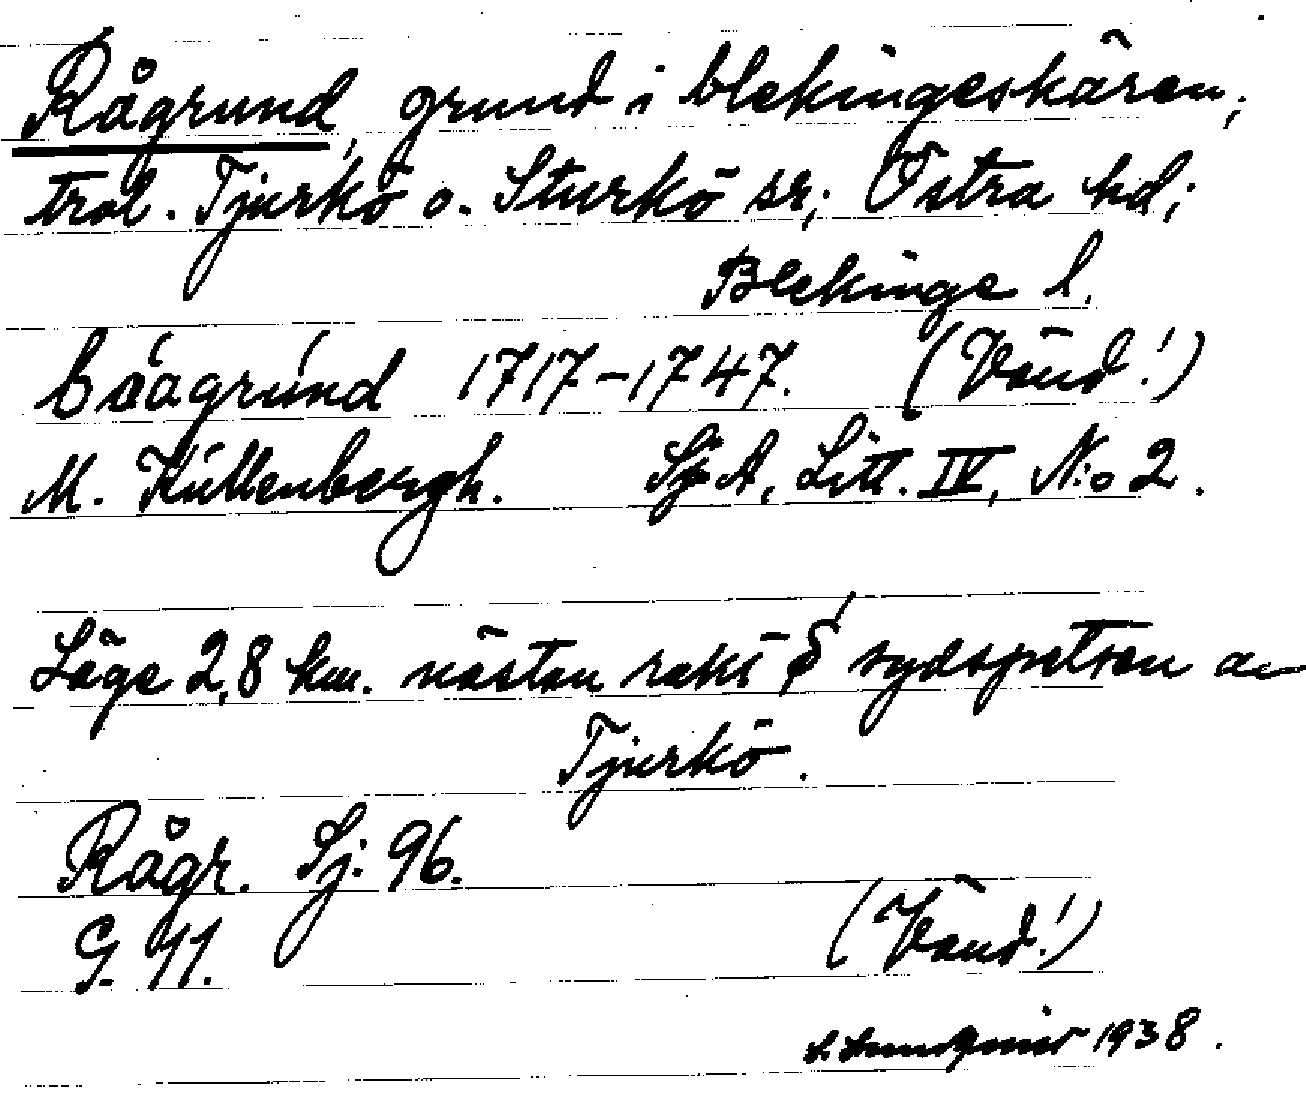 Rågrund, grund i blekingeskären;
trol. Tjurkö o. Sturkö sr; Östra hd;
Blekinge l.
Råågrund 1717-1747. (Vänd!)
M. Kúllenbergh. Sj.A, Litt. IV, N:o 2.
Läge 2,8 km. nästan rakt S sydspetsen av
Tjurkö.
Rågr. Sj. 96.
G. 41.
(Vänd!)
1938.